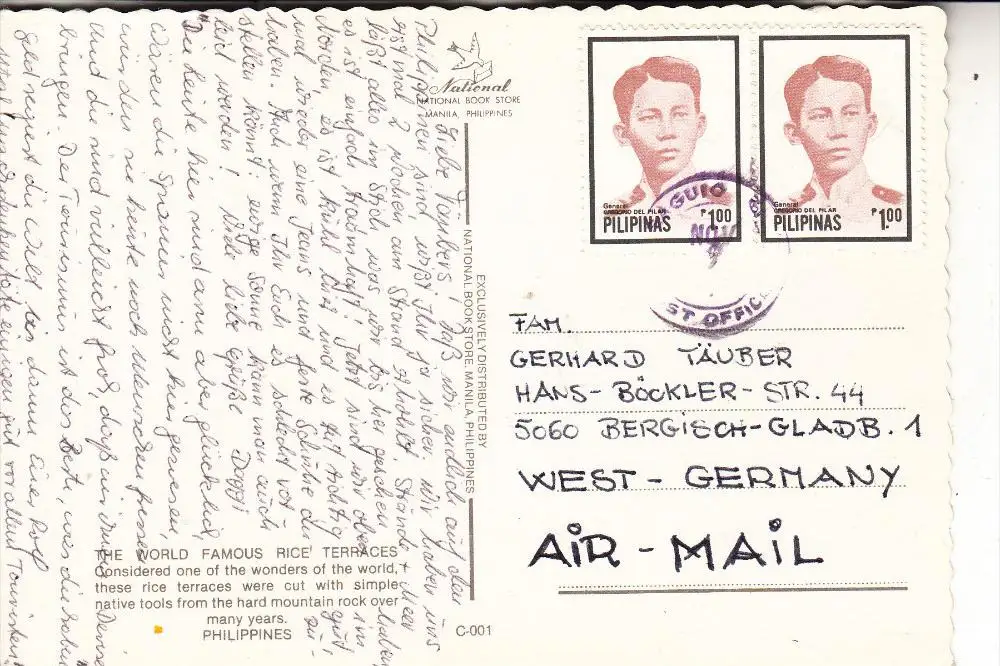 National
NATIONAL BOOK STORE
MANILA, PHILIPPINES
Liebe Täubers! Daß wir endlich auf den
Philippinen sind, wißt Ihr ja sicher. Wir haben uns
erstmal 2 Wochen am Strand erholt. Strände + Meer
läßt alles im Stich, was wir bis hier gesehen haben
es ist einfach traumhaft! Jetzt sind wir oben im
Norden, es ist kühl hier und es tut richtig gut,
mal wieder eine Jeans und feste Schuhe an zu
haben. Auch wenn Ihr Euch es schlecht vor-
stellen könnt: ewige Sonne kann man auch
leid werden! Liebe liebe Grüße
"Die Leute hier sind arm aber glücklich,
wären die Spanier nicht hier gewesen,
würden sie heute noch Menschen fressen
und du und vielleicht froh, daß wir ihnen
bringen. Der Tourismus ist das Beste, was die hatten
Geld regiert die Welt
vor allem Touristen!
EXCLUSIVELY DISTRIBUTED BY
NATIONAL BOOK STORE, MANILA, PHILIPPINES
THE WORLD FAMOUS RICE TERRACES
Considered one of the wonders of the world,
these rice terraces were cut with simple
native tools from the hard mountain rock over
many years.
PHILIPPINES
C-001
General
GREGORIO DEL PILAR
PILIPINAS
₱1.00
General
GREGORIO DEL PILAR
PILIPINAS
₱1.00
GUIO
NOV
ST OFFIC
FAM.
GERHARD TÄUBER
HANS-BÖCKLER-STR. 44
5060 BERGISCH-GLADB. 1
WEST-GERMANY
AIR-MAIL